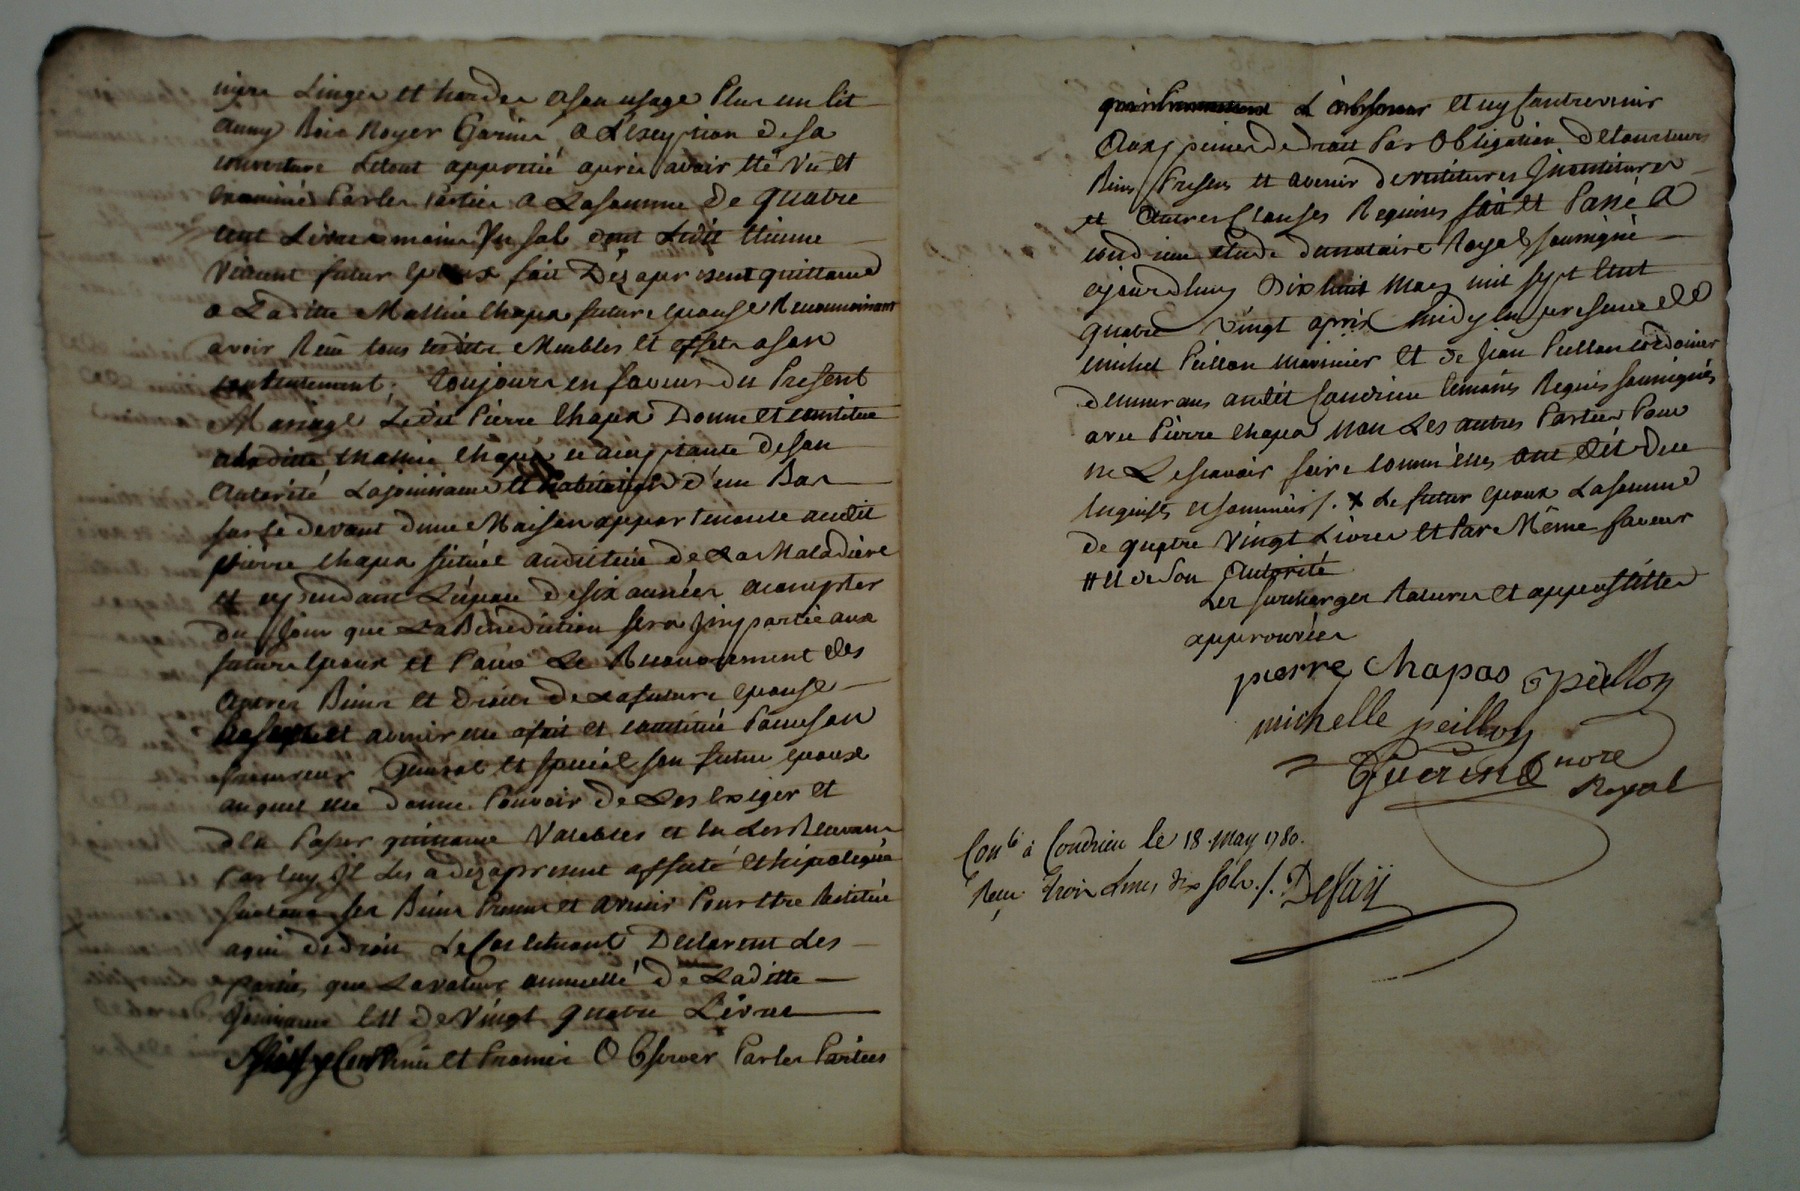 linges et hardes a son usage Plus un lit
Bois Noyer Garnie, a L'exeption de sa
couverture Letout apprecié apres avoir eté Vu et
examinés Par les parties a La somme de quatre
cent Livres moins Un sol dont Ledit Etienne
futur Epoux fait Dèz apresent quittance
a Laditte Mathie Chapas future epouse Reconnoissant
avoir Reçu tous lesdits Meubles et effets a son
contentement. Toujours en faveur du Present
Mariage Ledit Pierre Chapas Donne et constitue
aladitte Mathie Chapas ce acceptante de son
autorité La jouissance et habitation d'un Bas
sur le devant d'une Maison appartenante audit
pierre Chapas située audit lieu de La Maladière
et ce pendant L'espace de six années acompter
du Jour que La Bénediction sera Jmpartie aux
futurs Epoux et Pour Le Recouvrement des
autres Biens et Droits de La future epouse
Presents et avenir elle a fait et constitué Pour son
Procureur Général et spécial son futur epoux
auquel elle donne Pouvoir de Les Exiger et
d'en Passer quittance Valables et en Les Recevant
Par luy Jl Les a dèz apresent affecté et hipotequé
sur tous ses Biens Present et avenir Pour etre Restitué
a qui de droit Declarent Les
parties que La valeur annuelle de Laditte
Jouissance est de Vingt quatre Livres
et Promis Observer Par les Parties
L'observer et ny Contrevenir
aux peines de droit Par Obligation de tous leurs
Biens Presens et avenir
et autres Clauses Requises fait et Passé a
Condrieu etude du notaire Royal soussigné
ajourdhuy Dix huit May mil sept Cent
quatre Vingt après midy en presence de
michel Peillon marinier et de Jean Peillon cordonier
demeurans audit Condrieu temoins Requis soussignés
avec Pierre Chapas non Les autres Parties Pour
ne Le scavoir faire comme elles ont Dit De ce
enquises et sommées ./. X Le futur epoux La somme
de quatre Vingt Livres et Par Même faveur
# et de son Autorité
Les surcharges Ratures et appostilles
approuvées
pierre Chapas Jpeillon
michelle peillon
Guerin nore
Royal
Conlé à Condrieu le 18. may 1780.
Reçu trois Livres dix sols ./. Defay